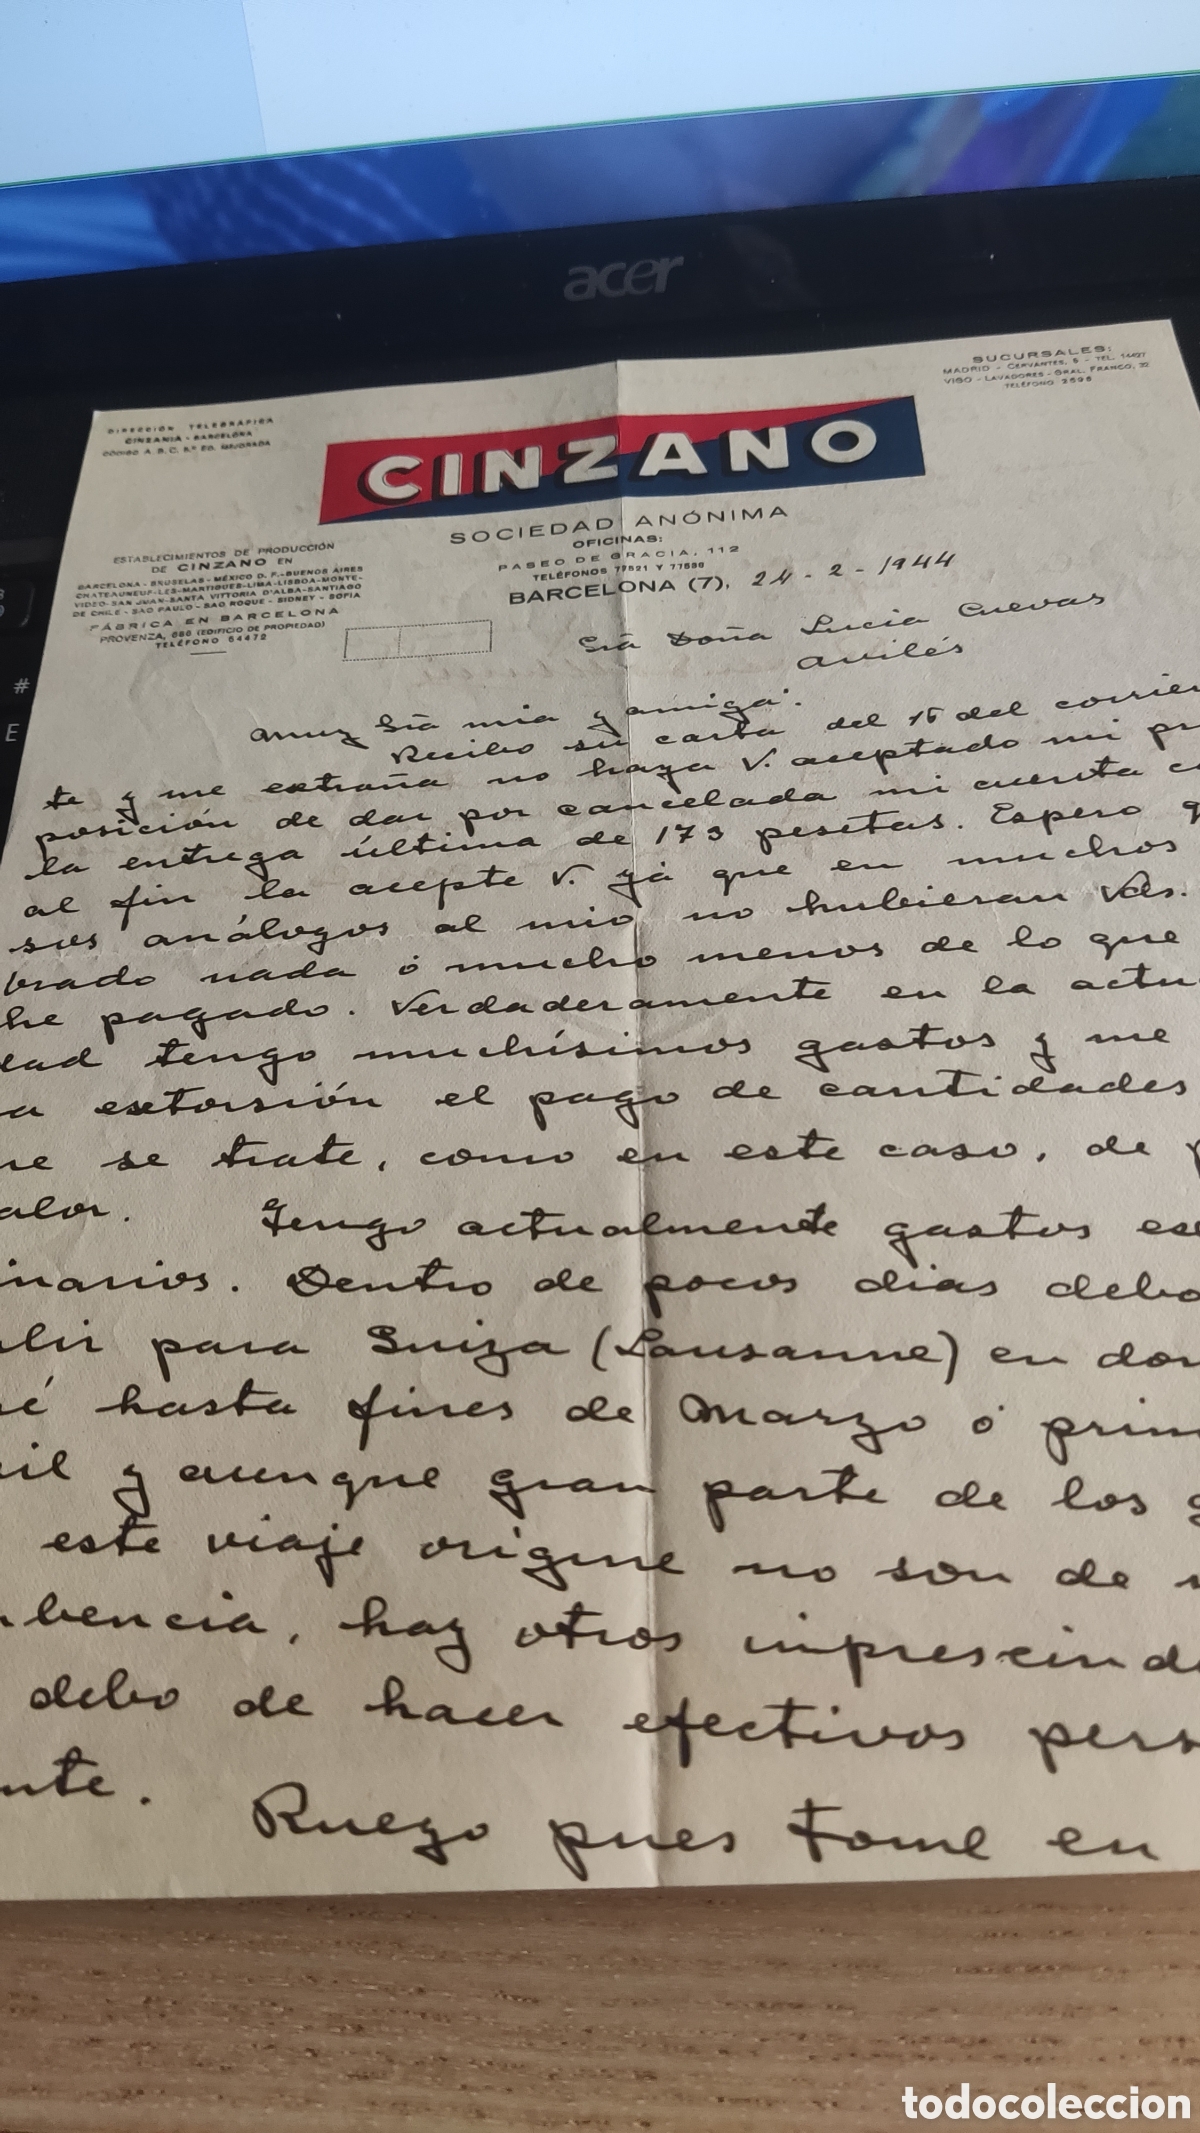 acer
SUCURSALES:
MADRID - CERVANTES, 6 - TEL. 14427
VIGO - LAVADORES - GRAL. FRANCO, 32
TELÉFONO 2595
DIRECCIÓN TELEGRAFICA
CINZANIA - BARCELONA
CÓDIGO A. B. C. 5ª ED. MEJORADA
CINZANO
SOCIEDAD ANÓNIMA
OFICINAS:
PASEO DE GRACIA, 112
TELÉFONOS 77521 Y 77590
BARCELONA (7), 24-2-1944
ESTABLECIMIENTOS DE PRODUCCIÓN
DE CINZANO EN
BARCELONA - BRUSELAS - MÉXICO D. F. - BUENOS AIRES
CHATEAUNEUF-LES-MARTIGUES-LIMA-LISBOA-MONTE-
VIDEO-SAN JUAN-SANTA VITTORIA D'ALBA-SANTIAGO
DE CHILE - SAO PAULO - SAO ROQUE - SIDNEY - SOFIA
FÁBRICA EN BARCELONA
PROVENZA, 686 (EDIFICIO DE PROPIEDAD)
TELÉFONO 54472
Srã Doña Lucia Cuevas
Avilés
Muy Srã mia y amiga:
Recibo su carta del 15 del corrien
te y me extraña no haya V. aceptado mi pro
posición de dar por cancelada mi cuenta co
la entrega última de 173 pesetas. Espero q
al fin la acepte V. yá que en muchos
sos análogos al mio no hubieran Vds.
brado nada ó mucho menos de lo que
he pagado. Verdaderamente en la actu
dad tengo muchísimos gastos y me
a extorsión el pago de cantidades
ue se trate, como en este caso, de p
alor. Tengo actualmente gastos ex
inarios. Dentro de pocos dias debo
lir para Suiza (Lausanne) en don
ré hasta fines de Marzo ó prin
ril y aunque gran parte de los g
este viaje origine no son de
mbencia, hay otros imprescind
debo de hacer efectivos pers
nte. Ruego pues tome en
todocoleccion